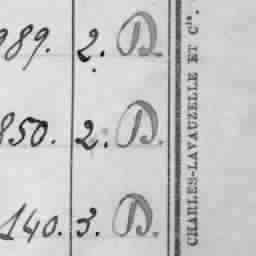 989. 2. D.
850. 2. D.
140. 3. D.
CHARLES-LAVAUZELLE ET Cie.